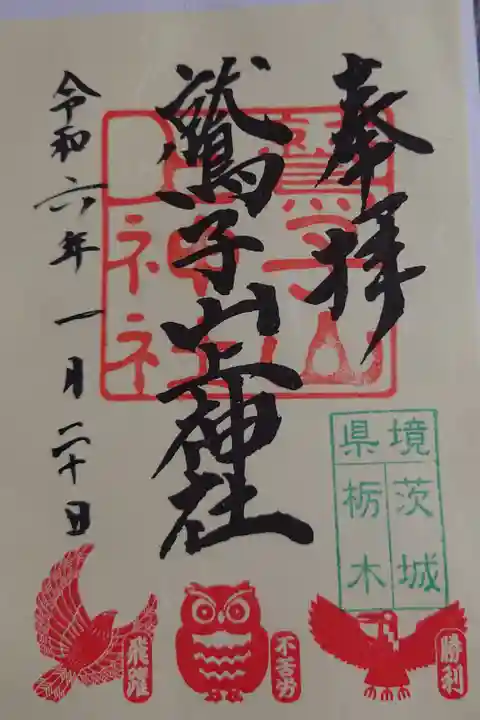 奉拝
鷲子山上神社
令和六年一月二十日
鷲子山
上神社
県境
茨城
栃木
飛躍
不苦労
勝利